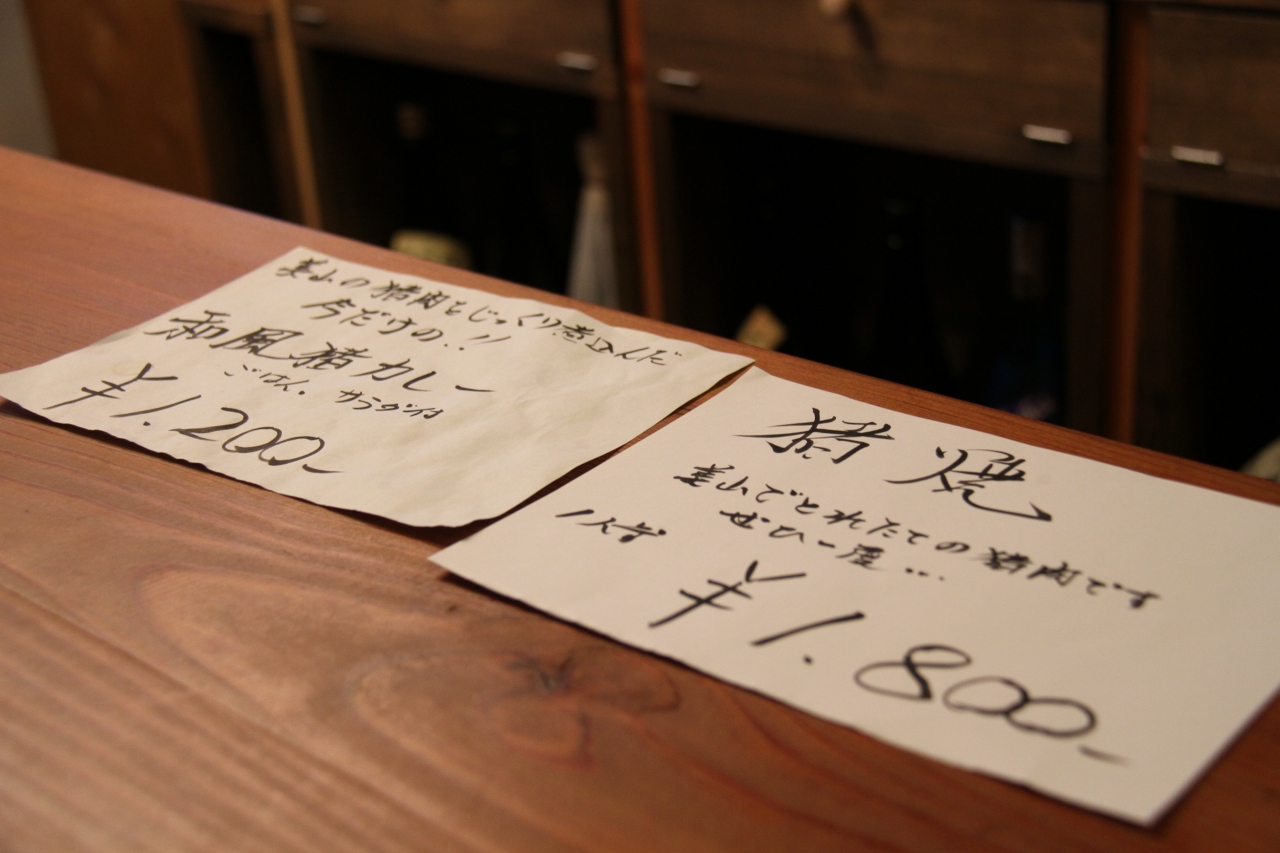 美山の猪肉をじっくり煮込んだ
今だけの..!!
和風猪カレー
ごはん。サラダ付
¥1.200-
猪焼
美山でとれたての猪肉です
ぜひ一度...
1人前
¥1.800-